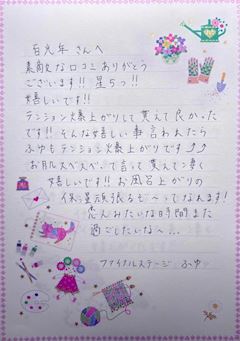 百元年 さんへ
素敵な口コミありがとう
ございます!! 星5つ!!
嬉しいです!!
テンション爆上がりして貰えて良かった
です!! そんな嬉しい事言われたら
ふゆもテンション爆上がりです⤴⤴
お肌スベスベ って言って貰えて凄く
嬉しいです!! お風呂上がりの
保湿頑張るもんってなれます!
恋人みたいな時間また
過ごしたいな〜...
ファイナルステージ ふゆ